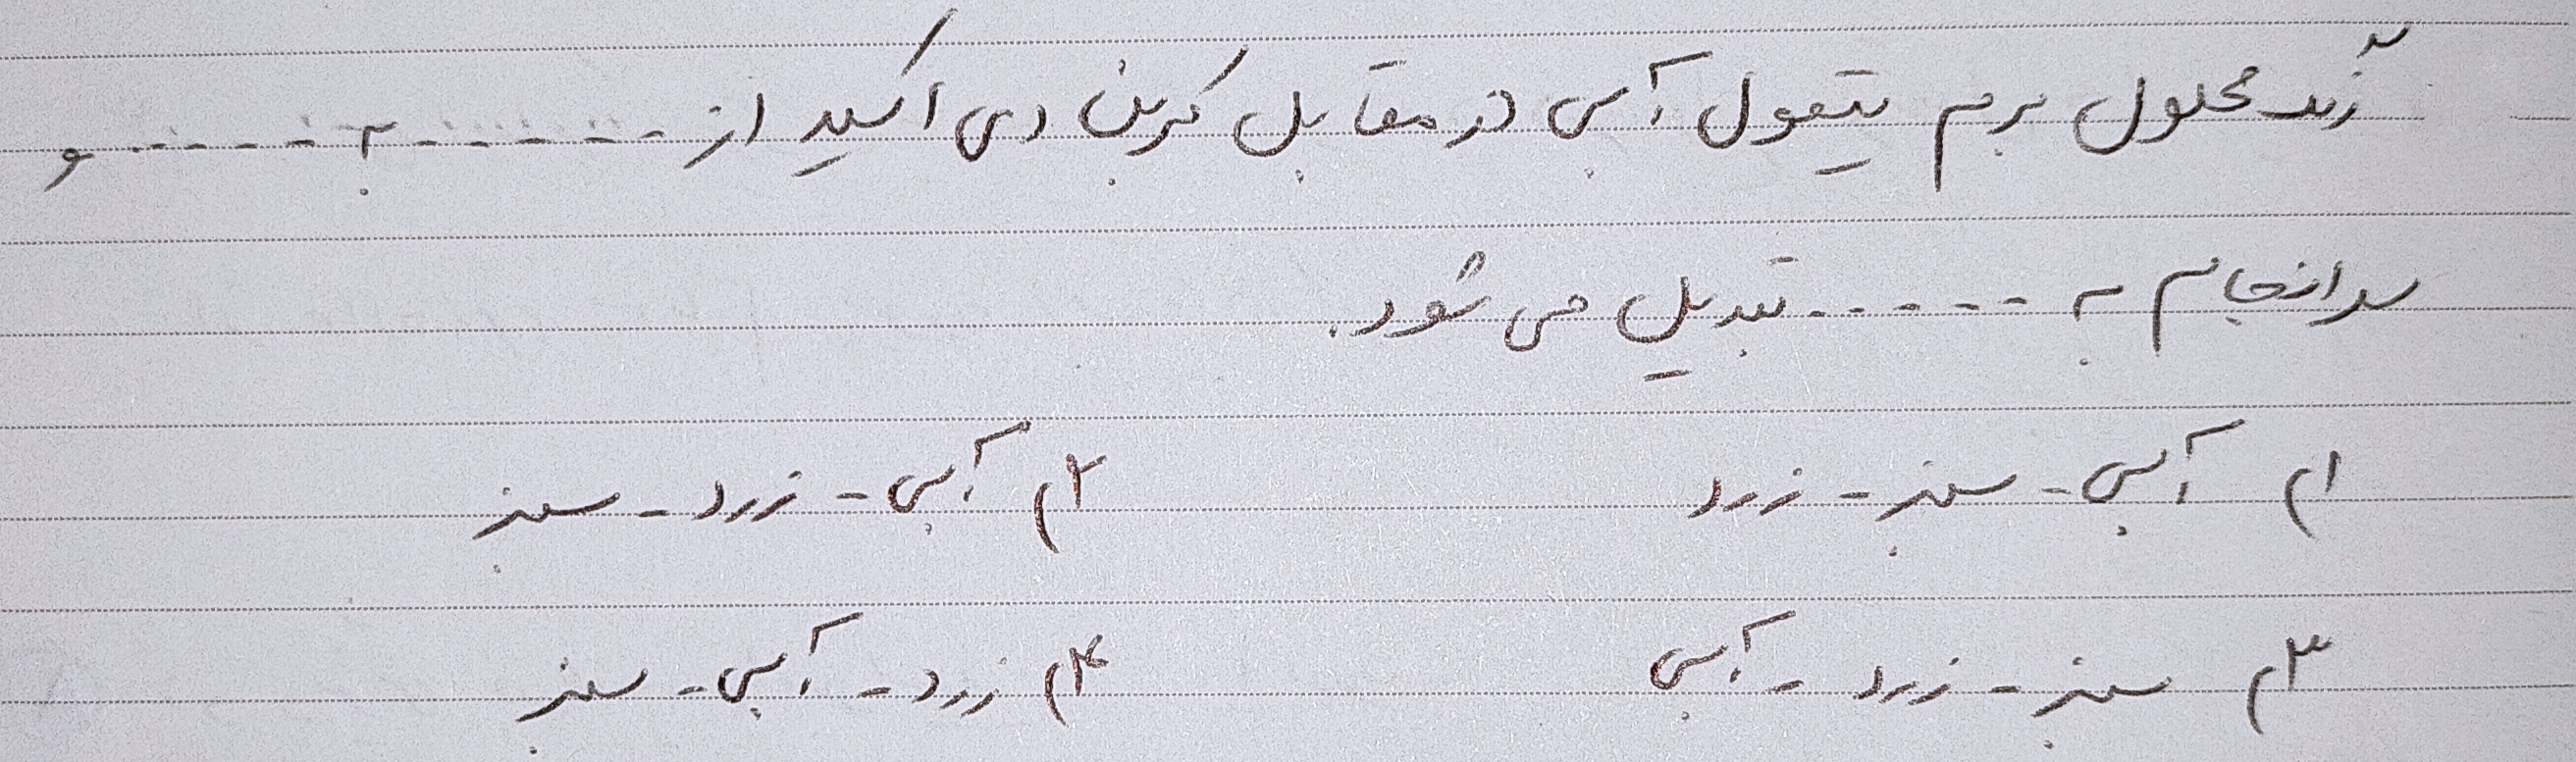 رنگ محلول برم تیمول آبی در مقابل کربن دی اکسید از ------- به ------- و
سرانجام به ------ تبدیل می شود.
۱) آبی - سبز - زرد ۲) آبی - زرد - سبز
۳) سبز - زرد - آبی ۴) زرد - آبی - سبز